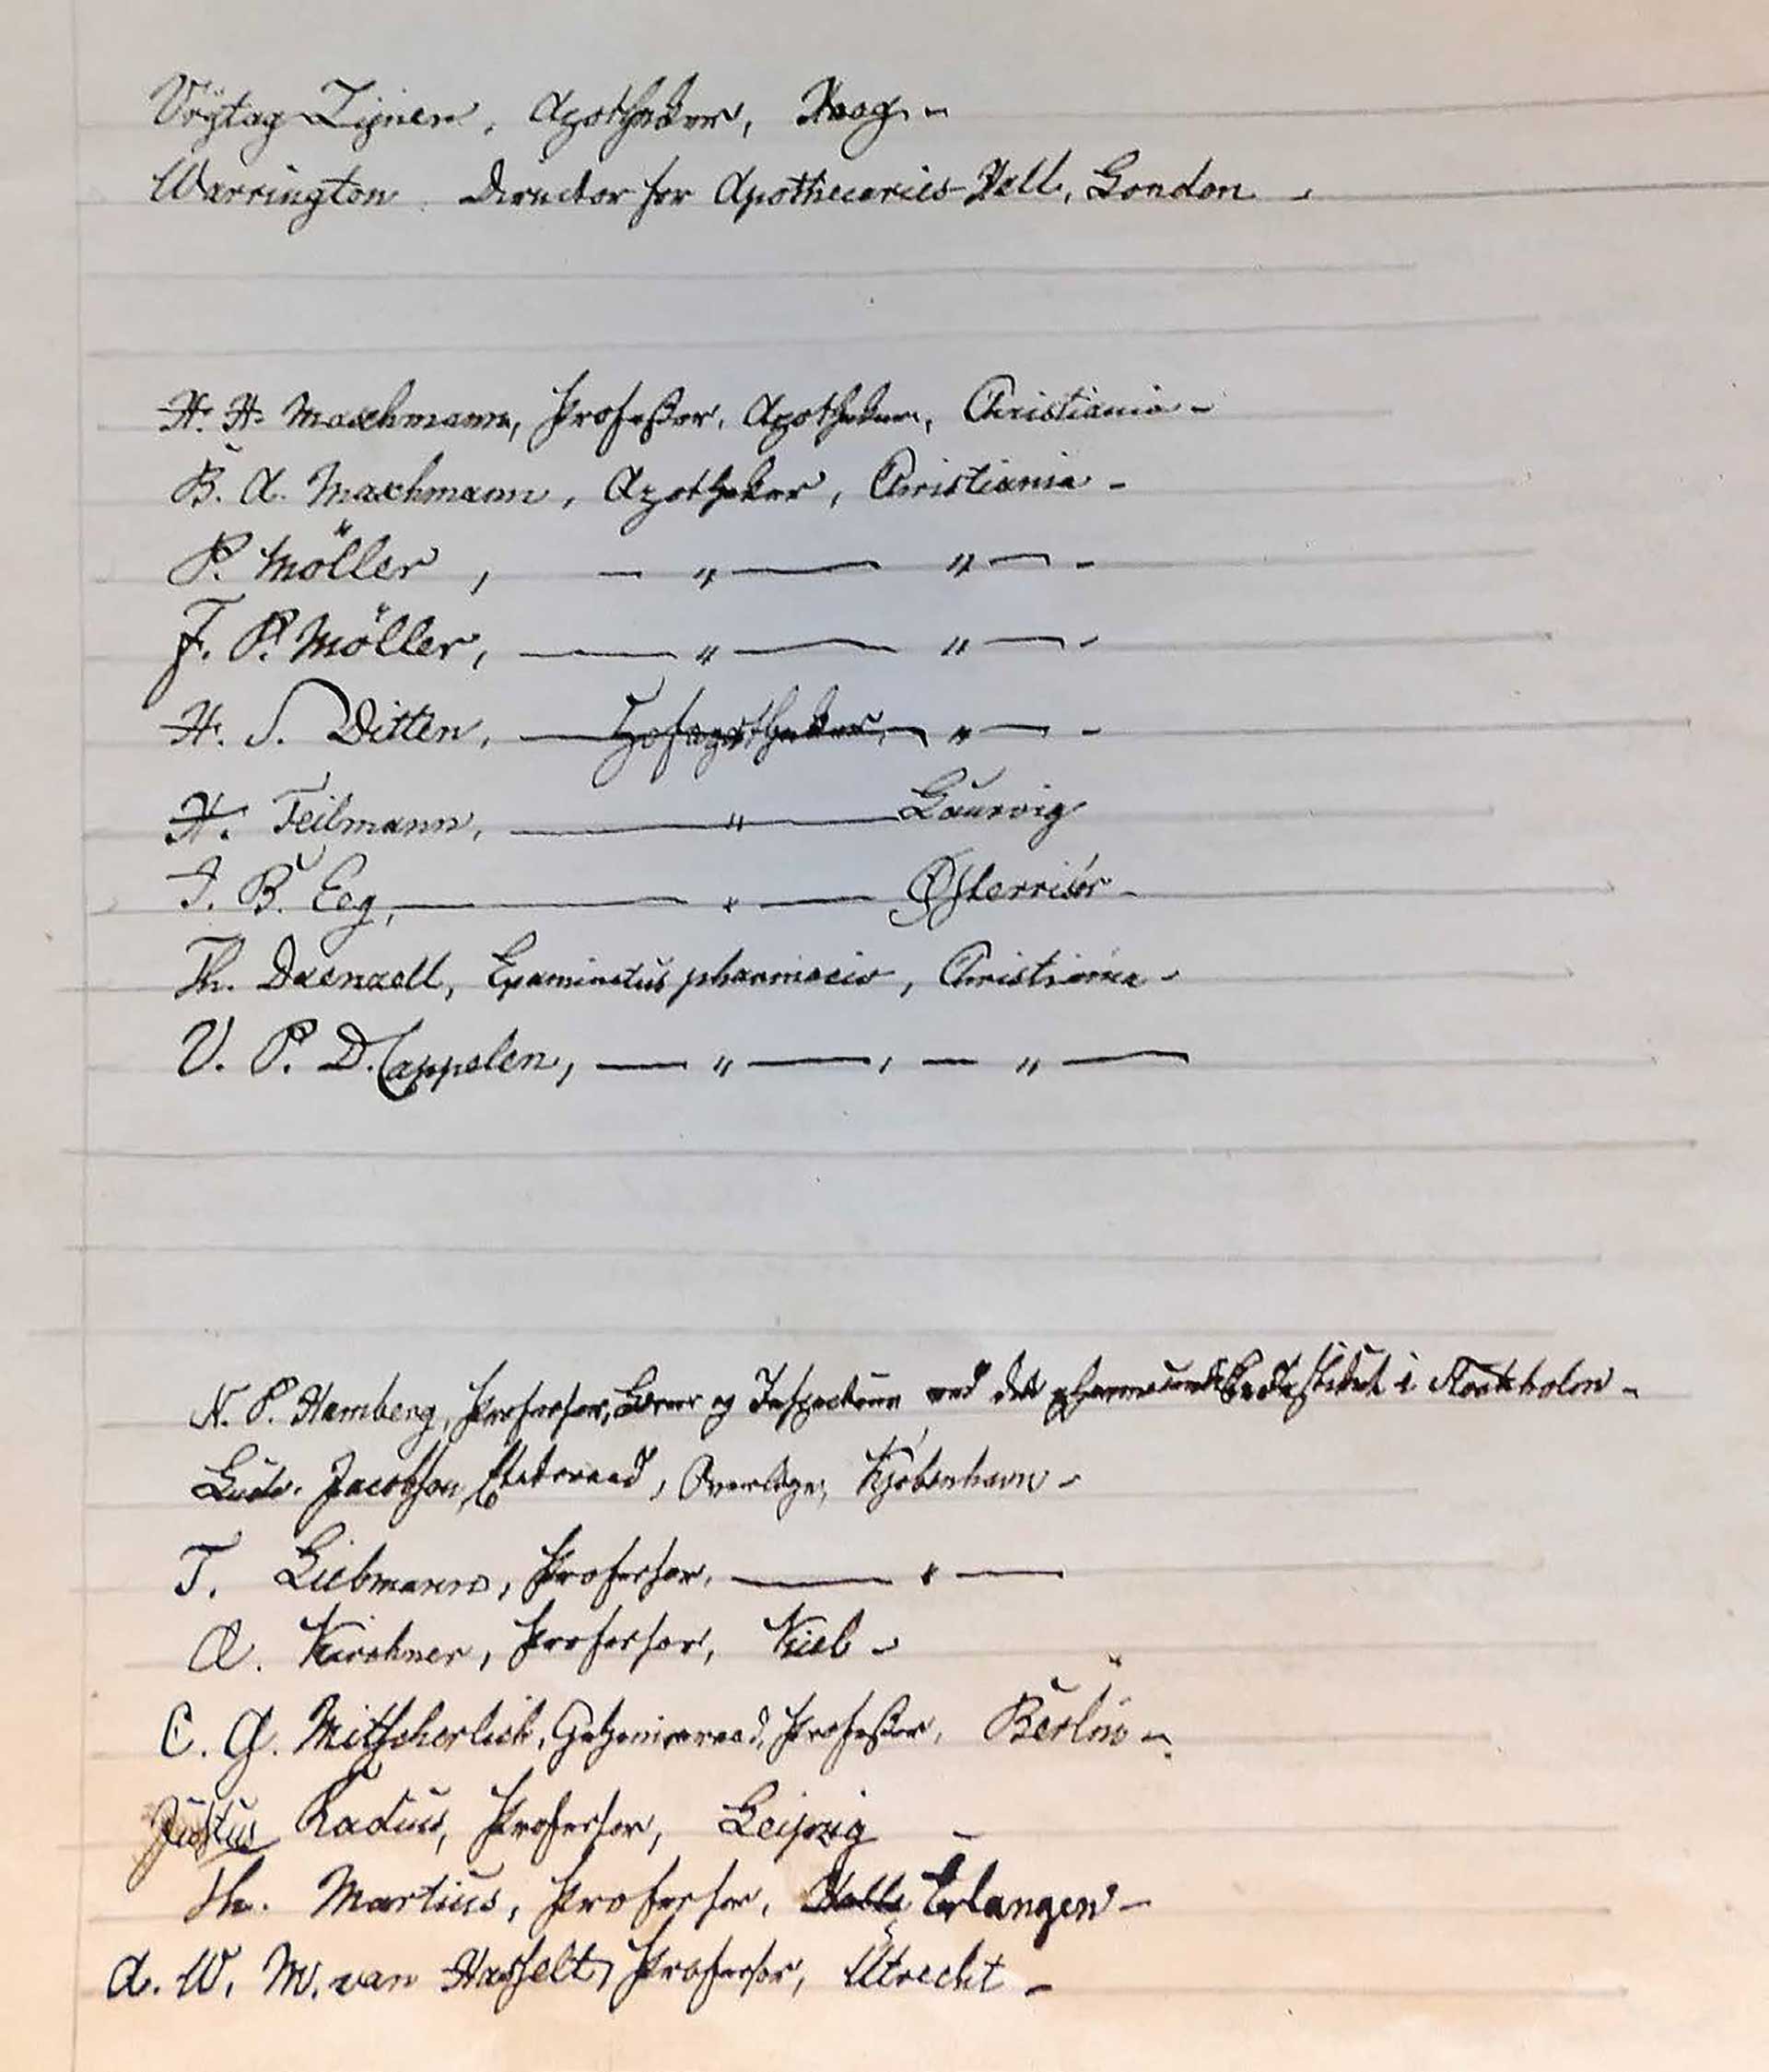 Vrÿtag Zynen, Apotheker, Haag. -
Warrington. Director for Apothecaries-Hall, London -
H. H. Maschmann, Profeßor, Apotheker, Christiania -
B. A. Maschmann, Apotheker, Christiania -
P. Möller, — " — " — -
F. P. Möller, — " — " — -
H. S. Ditten, — Hofapotheker, — " — -
H. Feilmann, — " — Laurvig
J. B. Eeg, — " — Østerriisör -
Th. Daenzell, Examinatus pharmaciæ, Christiania -
V. P. D. Cappelen, — " — , — " —
N. P. Hamberg, Professor, Lærer og Inspecteur ved det i Stockholm -
Ludv. Jacobson, Etatsraad, Overlæge, Kjöbenhavn -
T. Liebmann, Professor, — " —
A. Kirchner, Professor, Kiel -
C. G. Mitscherlich, Geheimeraad, Profeßor, Berlin -
Justus Radius, Professor, Leipzig -
Th. Martius, Professor, Halle Erlangen -
A. W. M. van Hasselt, Professor, Utrecht -